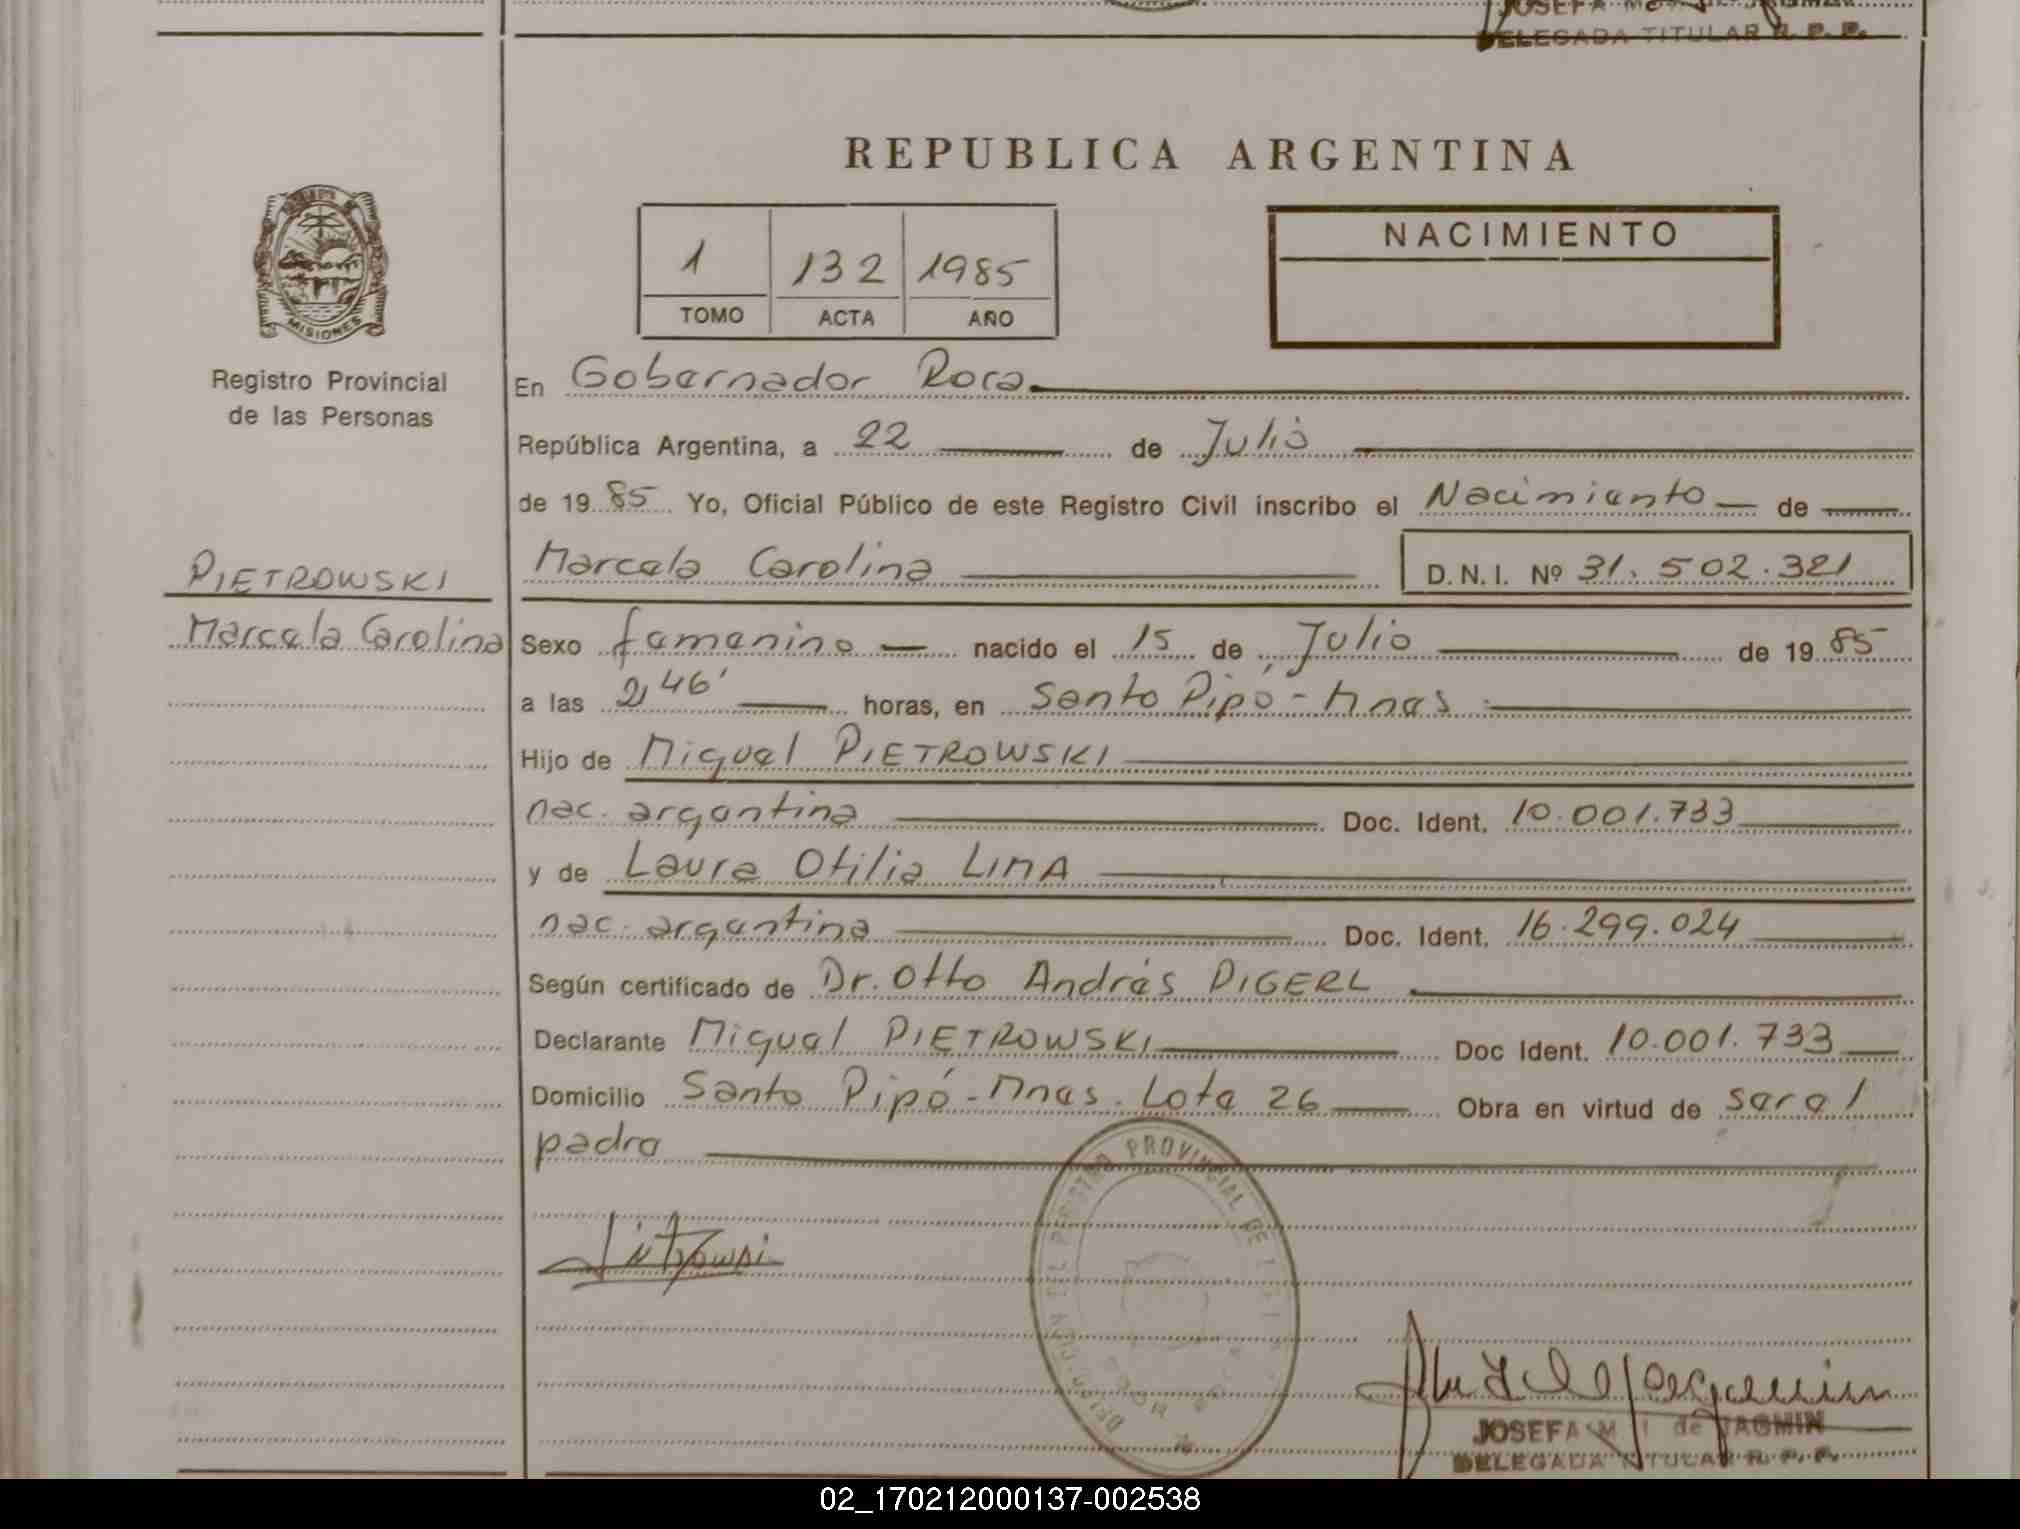 JOSEFA M
DELEGADA TITULAR R. P. P.
REPUBLICA ARGENTINA
MISIONES
Registro Provincial
de las Personas
1 132 1985
TOMO ACTA AÑO
NACIMIENTO
En Gobernador Roca
República Argentina, a 22 de Julio
de 1985 Yo, Oficial Público de este Registro Civil inscribo el Nacimiento de
PIETROWSKI
Marcela Carolina
Marcela Carolina D.N.I. Nº 31.502.321
Sexo femenino nacido el 15 de Julio de 1985
a las 2,46' horas, en Santo Pipó - Mnes.
Hijo de Miguel PIETROWSKI
nac. argentina Doc. Ident. 10.001.733
y de Laura Otilia LIMA
nac. argentina Doc. Ident. 16.299.024
Según certificado de Dr. Otto Andrés DIGERL
Declarante Miguel PIETROWSKI Doc Ident. 10.001.733
Domicilio Santo Pipó - Mnes. Lote 26 Obra en virtud de ser el
padre
PROVINCIAL DE
JOSEFA M. I. de JAGMIN
DELEGADA TITULAR R. P. P.
02_170212000137-002538